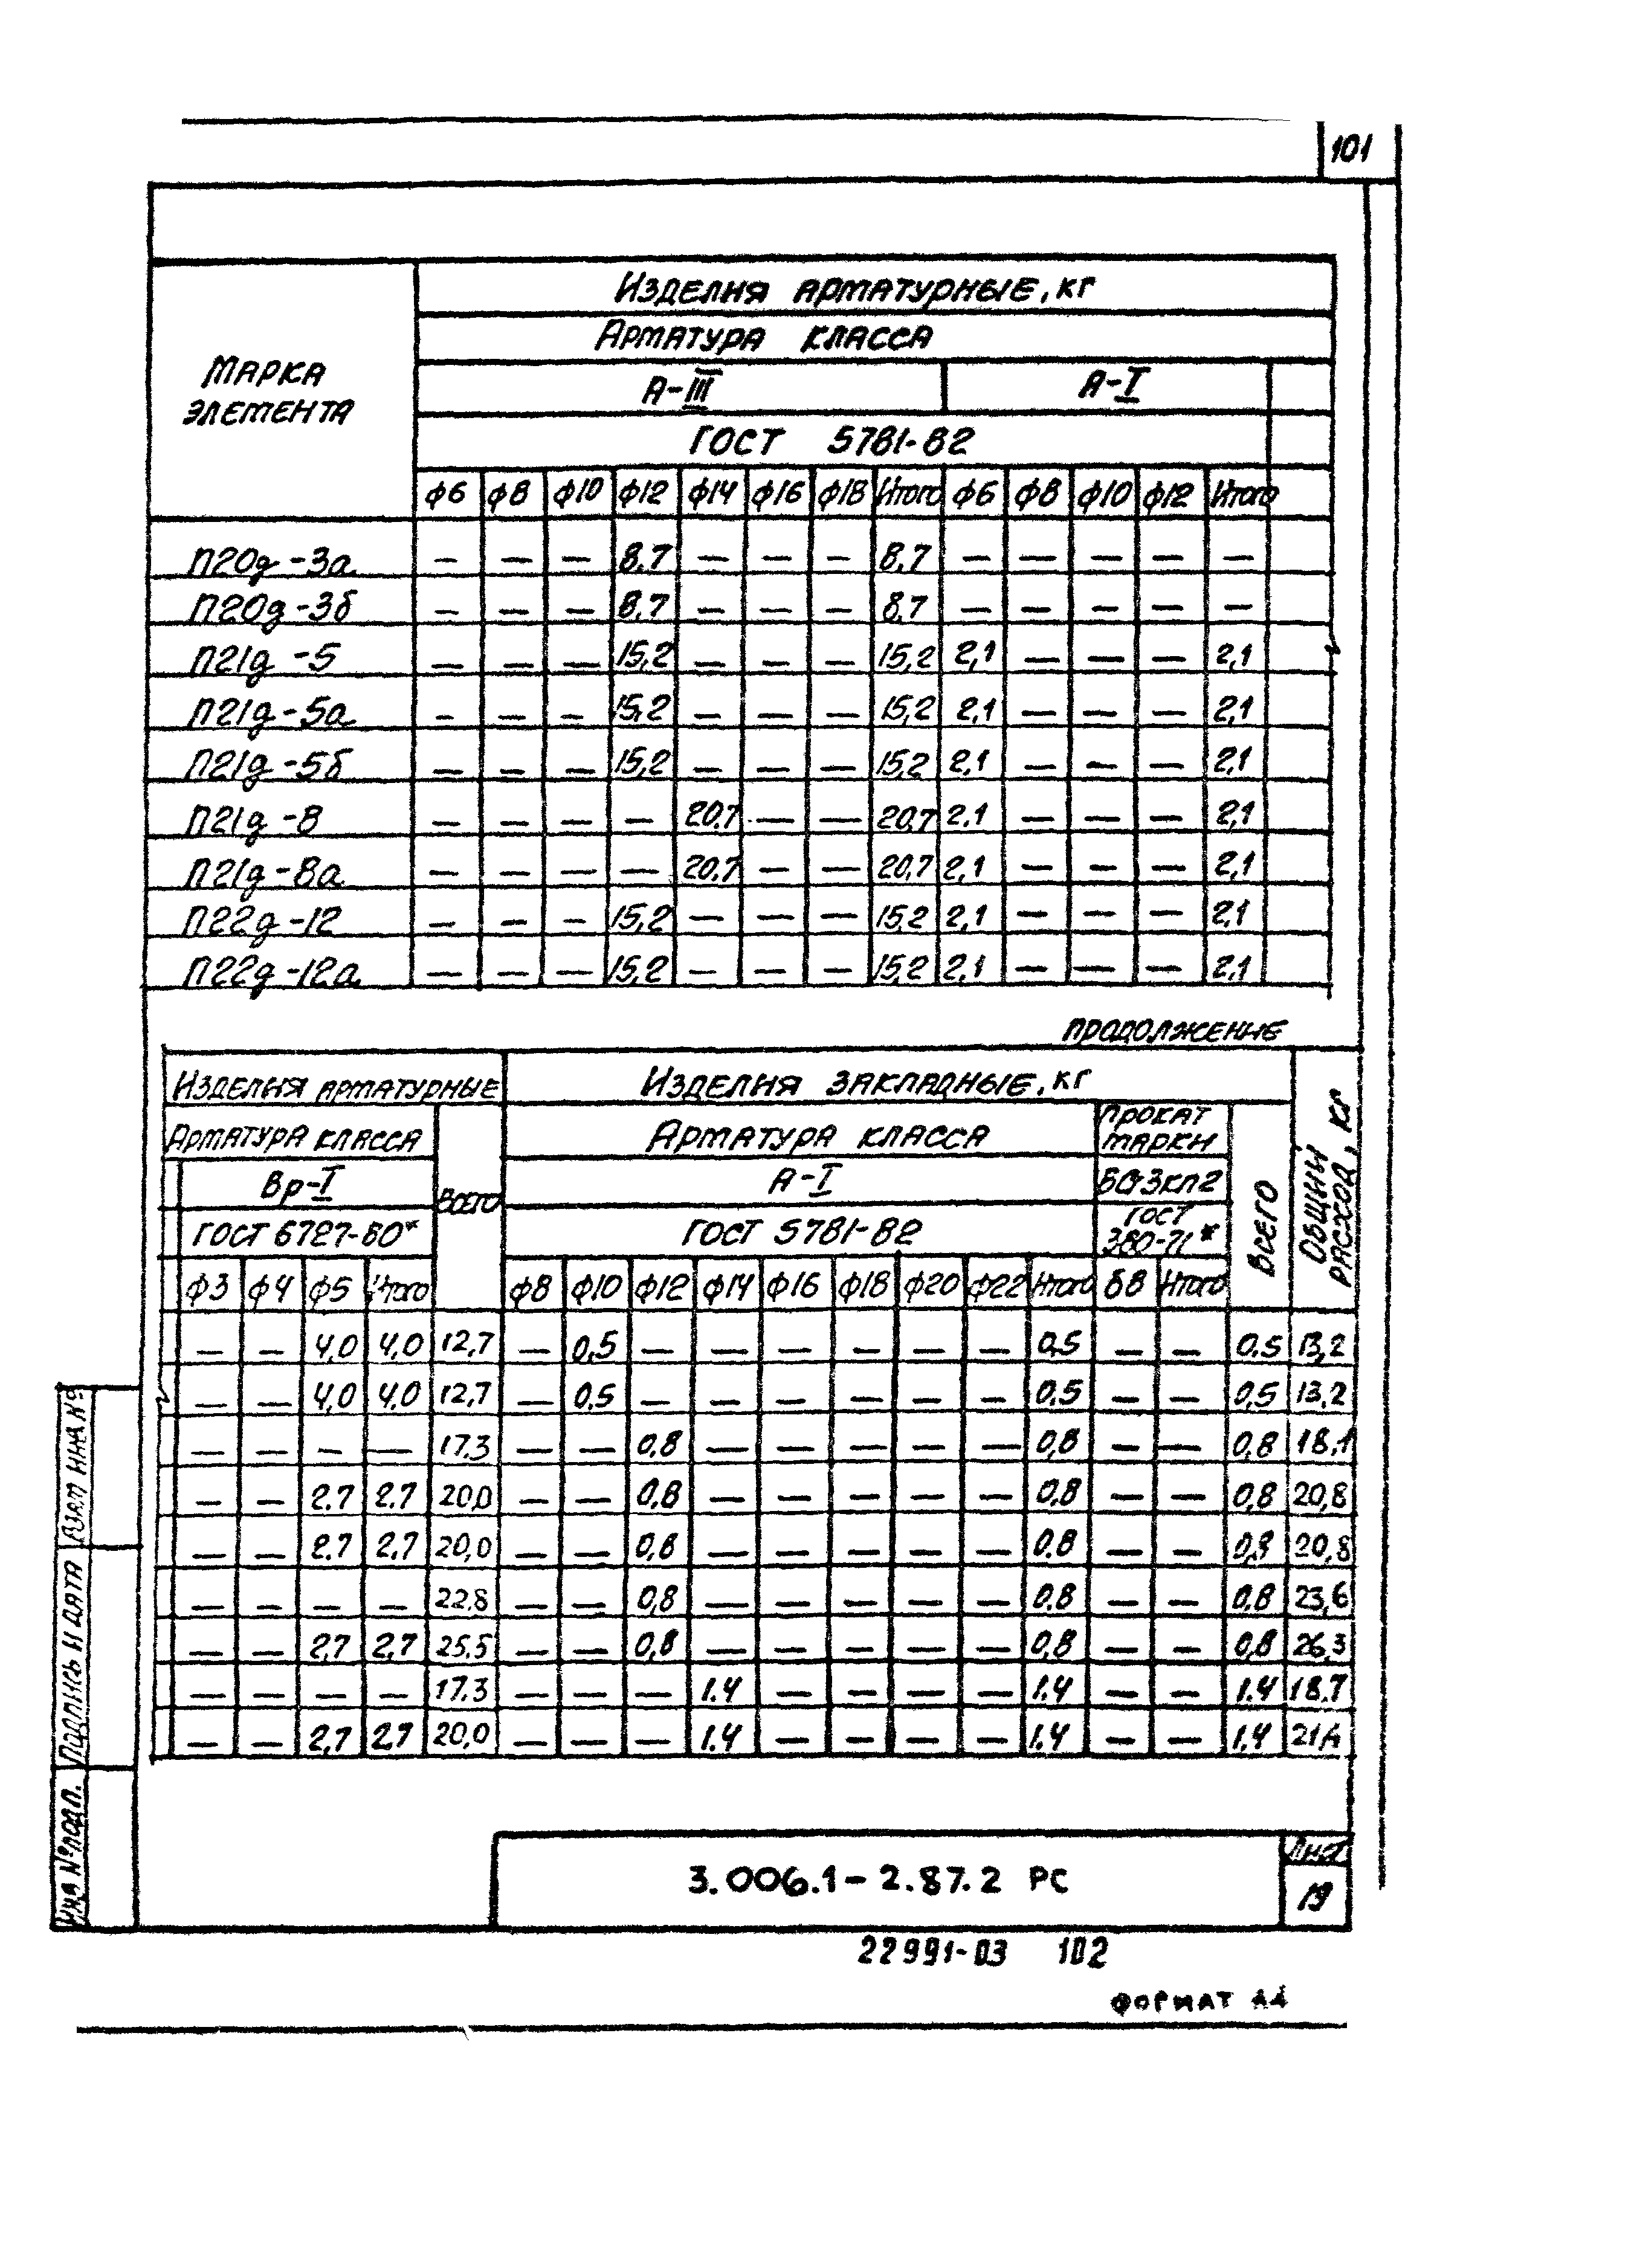 101
Изделия арматурные, кг
Арматура класса
Марка элемента
А-III А-I
ГОСТ 5781-82
ф6 ф8 ф10 ф12 ф14 ф16 ф18 Итого ф6 ф8 ф10 ф12 Итого
П20д-3а — — — 8,7 — — — 8,7 — — — — —
П20д-3б — — — 8,7 — — — 8,7 — — — — —
П21д-5 — — — 15,2 — — — 15,2 2,1 — — — 2,1
П21д-5а — — — 15,2 — — — 15,2 2,1 — — — 2,1
П21д-5б — — — 15,2 — — — 15,2 2,1 — — — 2,1
П21д-8 — — — — 20,7 — — 20,7 2.1 — — — 2,1
П21д-8а — — — — 20,7 — — 20,7 2,1 — — — 2,1
П22д-12 — — — 15,2 — — — 15,2 2,1 — — — 2,1
П22д-12а — — — 15,2 — — — 15,2 2,1 — — — 2,1
продолжение
Изделия арматурные Изделия закладные, кг
Арматура класса Всего Арматура класса Прокат марки Всего Общий расход, кг
Вр-I А-I
ГОСТ 6727-80* ГОСТ 5781-82 ГОСТ 380-71*
ф3 ф4 ф5 Итого ф8 ф10 ф12 ф14 ф16 ф18 ф20 ф22 Итого δ8 Итого
— — 4,0 4,0 12,7 — 0,5 — — — — — — 0,5 — — 0,5 13,2
— — 4,0 4,0 12,7 — 0,5 — — — — — — 0,5 — — 0,5 13,2
— — — — 17,3 — — 0,8 — — — — — 0,8 — — 0,8 18,1
— — 2,7 2,7 20,0 — — 0,8 — — — — — 0,8 — — 0,8 20,8
— — 2,7 2,7 20,0 — — 0,8 — — — — — 0,8 — — 0,8 20,8
— — — — 22,8 — — 0,8 — — — — — 0,8 — — 0,8 23,6
— — 2,7 2,7 25,5 — — 0,8 — — — — — 0,8 — — 0,8 26,3
— — — — 17,3 — — — 1.4 — — — — 1.4 — — 1.4 18.7
— — 2,7 2,7 20,0 — — — 1.4 — — — — 1.4 — — 1.4
Взам инв №
Подпись и дата
Инв № подл.
3.006.1-2.87.2 РС
Лист
19
22991-03 102
ФОРМАТ А4